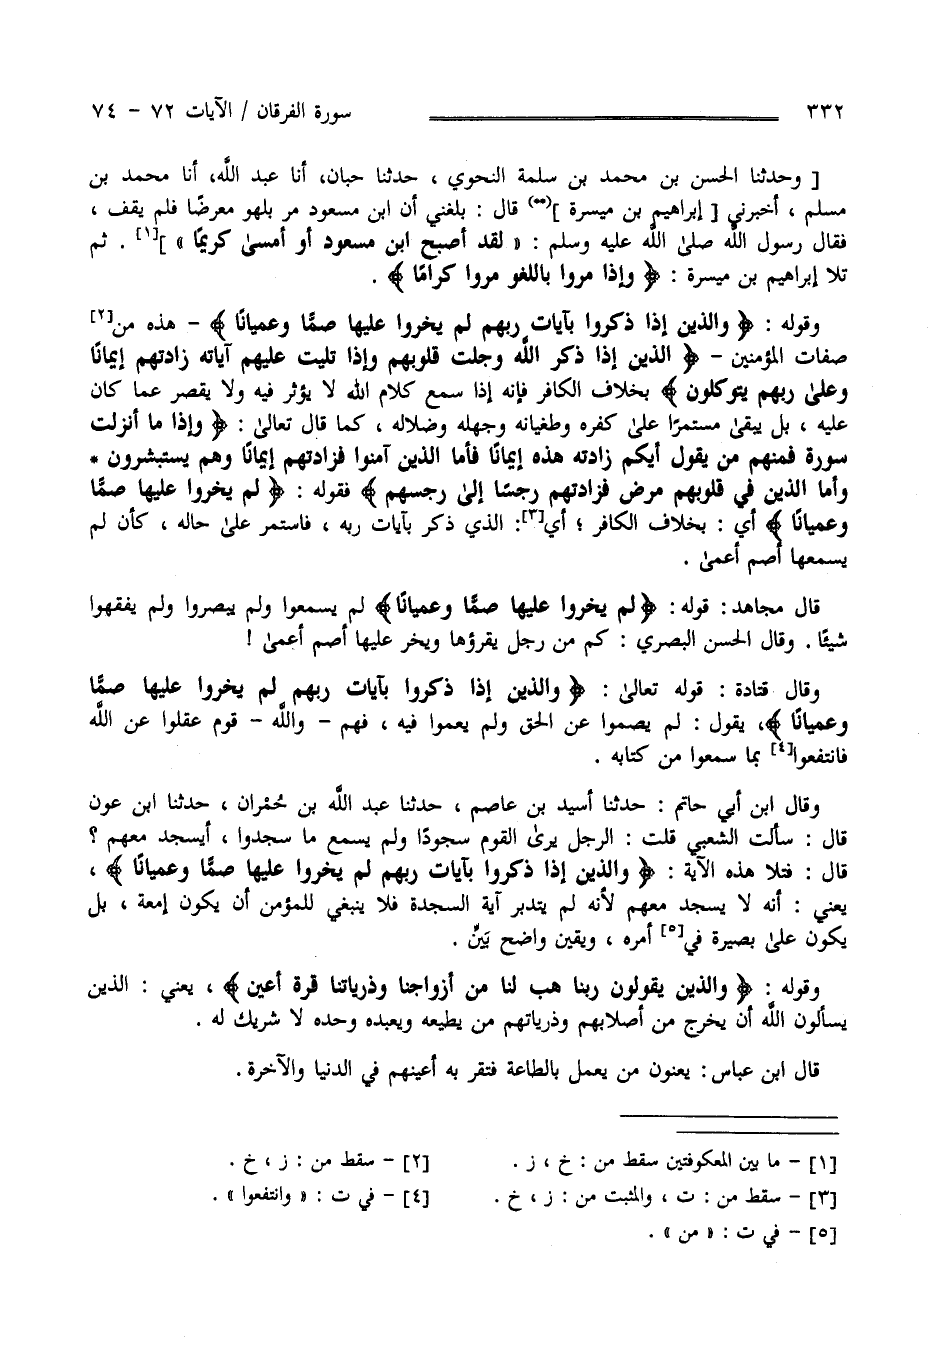 ٣٣٢ سورة الفرقان / الآيات ٧٢ - ٧٤
[ وحدثنا الحسن بن محمد بن سلمة النحوي ، حدثنا حبان، أنا عبد اللَّه، أنا محمد بن
مسلم ، أخبرني [ إبراهيم بن ميسرة ](**) قال : بلغني أن ابن مسعود مر بلهو معرضًا فلم يقف ،
فقال رسول اللَّه صلىٰ اللَّه عليه وسلم : « لقد أصبح ابن مسعود أو أمسىٰ كريمًا » ][١] . ثم
تلا إبراهيم بن ميسرة : ﴿ وإذا مروا باللغو مروا كرامًا ﴾ .
وقوله : ﴿ والذين إذا ذكروا بآيات ربهم لم يخروا عليها صمًّا وعميانًا ﴾ - هذه من[٢]
صفات المؤمنين - ﴿ الذين إذا ذكر اللَّه وجلت قلوبهم وإذا تليت عليهم آياته زادتهم إيمانًا
وعلىٰ ربهم يتوكلون ﴾ بخلاف الكافر فإنه إذا سمع كلام الله لا يؤثر فيه ولا يقصر عما كان
عليه ، بل يبقىٰ مستمرًا علىٰ كفره وطغيانه وجهله وضلاله ، كما قال تعالىٰ : ﴿ وإذا ما أنزلت
سورة فمنهم من يقول أيكم زادته هذه إيمانًا فأما الذين آمنوا فزادتهم إيمانًا وهم يستبشرون *
وأما الذين في قلوبهم مرض فزادتهم رجسًا إلىٰ رجسهم ﴾ فقوله : ﴿ لم يخروا عليها صمًّا
وعميانًا ﴾ أي : بخلاف الكافر ؛ أي[٣]: الذي ذكر بآيات ربه ، فاستمر علىٰ حاله ، كأن لم
يسمعها أصم أعمىٰ .
قال مجاهد: قوله: ﴿لم يخروا عليها صمًّا وعميانًا﴾ لم يسمعوا ولم يبصروا ولم يفقهوا
شيئًا . وقال الحسن البصري : كم من رجل يقرؤها ويخر عليها أصم أعمىٰ !
وقال قتادة : قوله تعالىٰ : ﴿ والذين إذا ذكروا بآيات ربهم لم يخروا عليها صمًّا
وعميانًا ﴾، يقول : لم يصموا عن الحق ولم يعموا فيه ، فهم - واللَّه - قوم عقلوا عن اللَّه
فانتفعوا[٤] بما سمعوا من كتابه .
وقال ابن أبي حاتم : حدثنا أسيد بن عاصم ، حدثنا عبد اللَّه بن حُمْران ، حدثنا ابن عون
قال : سألت الشعبي قلت : الرجل يرىٰ القوم سجودًا ولم يسمع ما سجدوا ، أيسجد معهم ؟
قال : فتلا هذه الآية : ﴿ والذين إذا ذكروا بآيات ربهم لم يخروا عليها صمًّا وعميانًا ﴾ ،
يعني : أنه لا يسجد معهم لأنه لم يتدبر آية السجدة فلا ينبغي للمؤمن أن يكون إمعة ، بل
يكون علىٰ بصيرة في[٥] أمره ، ويقين واضح بَيِّنٌ .
وقوله : ﴿ والذين يقولون ربنا هب لنا من أزواجنا وذرياتنا قرة أعين ﴾ ، يعني : الذين
يسألون اللَّه أن يخرج من أصلابهم وذرياتهم من يطيعه ويعبده وحده لا شريك له .
قال ابن عباس: يعنون من يعمل بالطاعة فتقر به أعينهم في الدنيا والآخرة.
[١] - ما بين المعكوفتين سقط من : خ ، ز . [٢] - سقط من : ز ، خ .
[٣] - سقط من : ت ، والمثبت من : ز ، خ . [٤] - في ت : « وانتفعوا » .
[٥] - في ت : « من » .